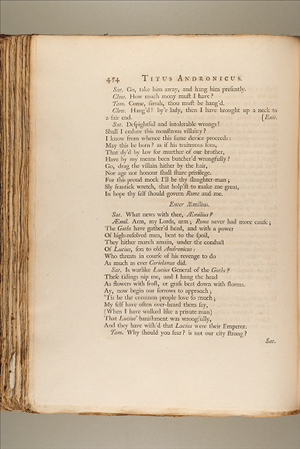 454 TITUS ANDRONICUS.
Sat. Go, take him away, and hang him preſently.
Clow. How much mony muſt I have?
Tam. Come, ſirrah, thou muſt be hang'd.
Clow. Hang'd! by'r lady, then I have brought up a neck to
a fair end. [Exit.
Sat. Deſpightful and intolerable wrongs!
Shall I endure this monſtrous villainy?
I know from whence this ſame device proceeds:
May this be born? as if his trait'rous ſons,
That dy'd by law for murther of our brother,
Have by my means been butcher'd wrongfully?
Go, drag the villain hither by the hair,
Nor age nor honour ſhall ſhape privilege.
For this proud mock I'll be thy ſlaughter-man;
Sly frantick wretch, that holp'ſt to make me great,
In hope thy ſelf ſhould govern Rome and me.
Enter Æmilius.
Sat. What news with thee, Æmilius?
Æmil. Arm, my Lords, arm; Rome never had more cauſe;
The Goths have gather'd head, and with a power
Of high-reſolved men, bent to the ſpoil,
They hither march amain, under the conduct
Of Lucius, ſon to old Andronicus:
Who threats in courſe of his revenge to do
As much as ever Coriolanus did.
Sat. Is warlike Lucius General of the Goths?
Theſe tidings nip me, and I hang the head
As flowers with froſt, or graſs beat down with ſtorms.
Ay, now begin our ſorrows to approach;
'Tis he the common people love ſo much;
My ſelf have often over-heard them ſay,
(When I have walked like a private man)
That Lucius' baniſhment was wrongfully,
And they have wiſh'd that Lucius were their Emperor.
Tam. Why ſhould you fear? is not our city ſtrong?
Sat.